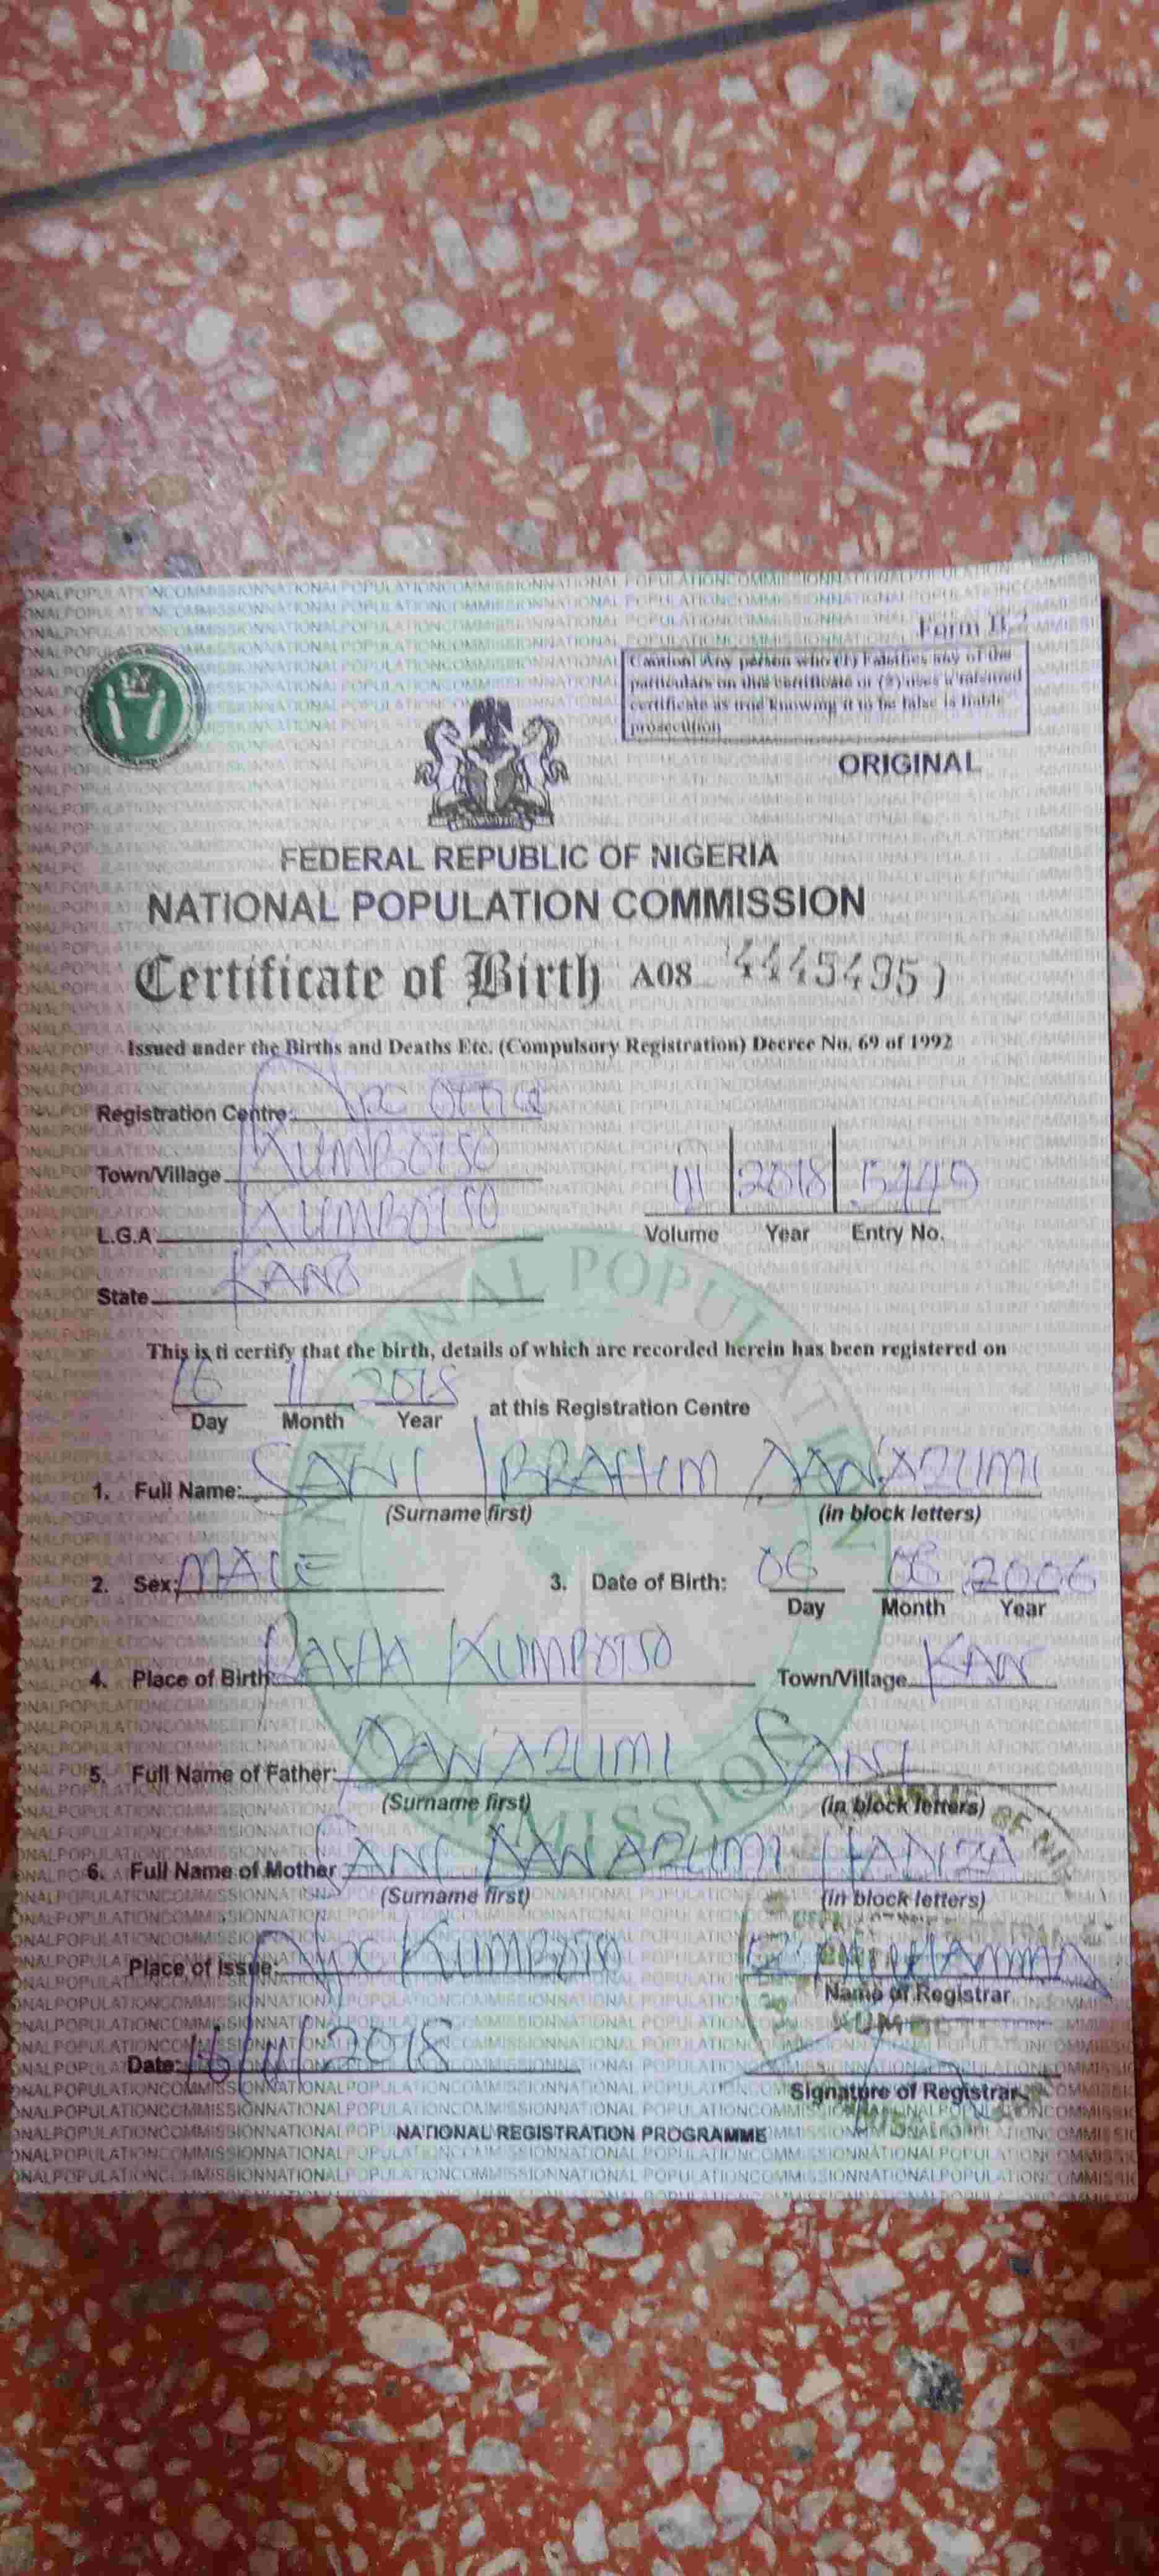 Form B.
Caution! Any person who (1) Falsifies any of the
particulars on this certificate or (2) uses a falsified
certificate as true knowing it to be false is liable
prosecution
ORIGINAL
FEDERAL REPUBLIC OF NIGERIA
NATIONAL POPULATION COMMISSION
Certificate of Birth A08
Issued under the Births and Deaths Etc. (Compulsory Registration) Decree No. 69 of 1992
Registration Centre: Npc office
Town/Village KUMBOTSO
L.G.A KUMBOTSO
2018
Volume Year Entry No.
State KANO
This is ti certify that the birth, details of which are recorded herein has been registered on
16 11 2018 at this Registration Centre
Day Month Year
1. Full Name: SANI IBRAHIM DAN'AZUMI
(Surname first) (in block letters)
2. Sex: MALE 3. Date of Birth: 06 06 2006
Day Month Year
4. Place of Birth KUMBOTSO Town/Village KAN
5. Full Name of Father: DANAZUMI SANI
(Surname first) (in block letters)
6. Full Name of Mother SANI DANAZUMI
(Surname first) (in block letters)
Place of Issue: Npc KUMBOTSO
Name of Registrar
Date: 16/11/2018
Signature of Registrar
NATIONAL REGISTRATION PROGRAMME